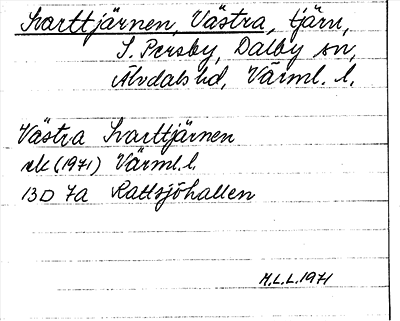 Svarttjärnen, Västra, tjärn,
S. Persby, Dalby sn,
Älvdals hd, Värml. l.
Västra Svarttjärnen
ek (1971) Värml. l.
13D 7a Rattsjöhallen
M.L.L. 1971